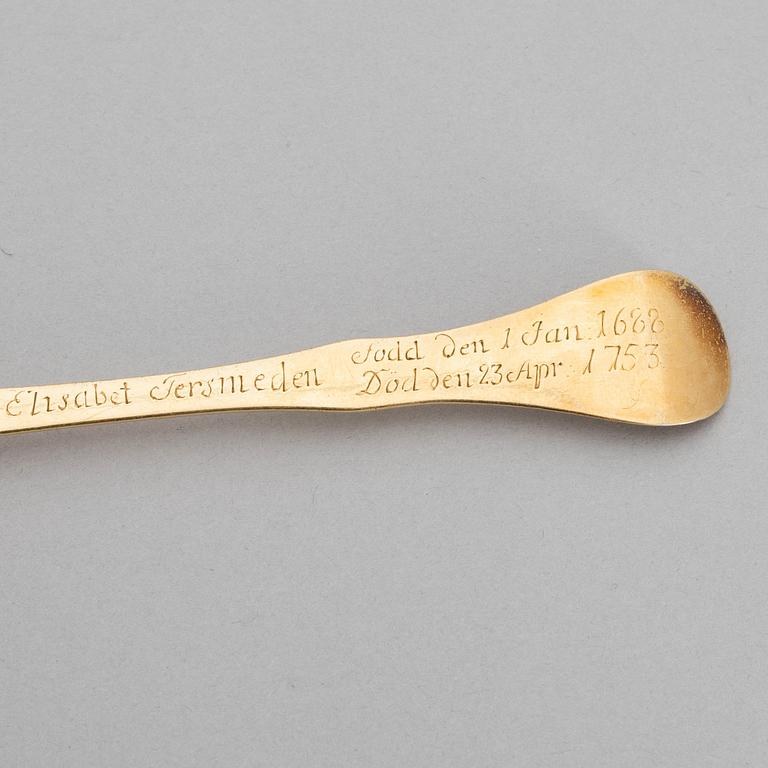 Elisabet Tersmeden
Född den 1 Jan: 1688
Död den 23 Apr: 1753